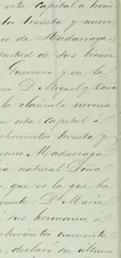 esta Capital á trein
trenta y nueve
ro de Madariaga
mitad de sus bienes
Guerrero y en la
D Miguel y Dona
la clausula novena
en esta capital á
chocientos treinta y
Madariaga
natural Dona
que es la que ha
D.ª Maria
sus hermanos á
chocientos cincuenta
declaró su última